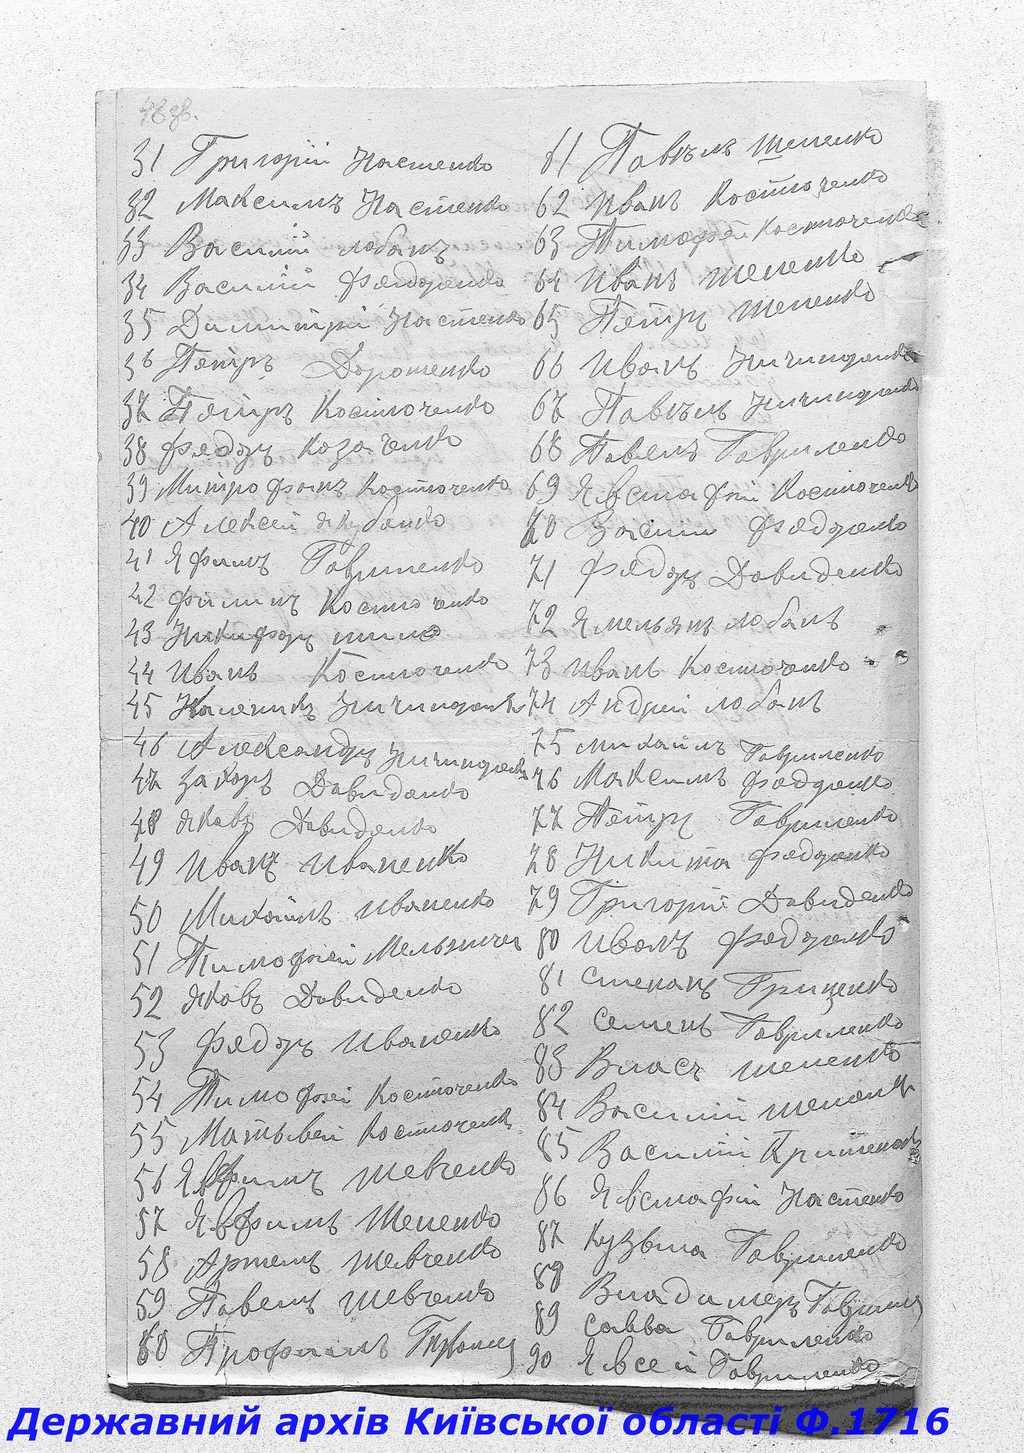 48 зв.
31 Григорій Настенко
32 Максимъ Настенко
33 Василій лобанъ
34 Василій Федоренко
35 Димитрій Настенко
36 Петръ Дорошенко
37 Петръ Костюченко
38 Федоръ Козаченко
39 Митрофанъ Костюченко
40 Алексей Якубенко
41 Яфимъ Гавриленко
42 Филипъ Костюченко
43 Никифоръ
44 Иванъ Костюченко
45 Каленикъ Ничипоренко
46 Александръ Ничипоренко
47 Захаръ Давиденко
48 Яковъ Давиденко
49 Иванъ Иваненко
50 Михаилъ Иваненко
51 Тимофей Мельничен
52 Яковъ Давиденко
53 Федоръ Иваненко
54 Тимофей Костюченко
55 Матьвей Костюченко
56 Явфимъ Шевченко
57 Явфимъ Шепенко
58 Артемъ Шевченко
59 Павелъ Шевченко
60 Трофимъ
61 Павелъ Шепенко
62 Иванъ Костюченко
63 Тимофей Костюченко
64 Иванъ Шепенко
65 Петръ Шепенко
66 Иванъ Ничипоренко
67 Павелъ Ничипоренко
68 Павелъ Гавриленко
69 Явстафій Костюченко
70 Василий Федоренко
71 Федоръ Давиденко
72 Ямельянъ лобанъ
73 Иванъ Костюченко
74 Андрей лобанъ
75 Михаилъ Гавриленко
76 Максимъ Федоренко
77 Петръ Гавриленко
78 Никита Федоренко
79 Григорій Давиденко
80 Иванъ Федоренко
81 Степанъ Гриценко
82 Семенъ Гавриленко
83 Власъ Шепенко
84 Василій Шепенко
85 Василій
86 Явстафій Настенко
87 Кузьма Гавриленко
88 Владимеръ Гаврилен
89 Савва Гавриленко
90 Явсей Гавриленко
Державний архів Київської області Ф.1716